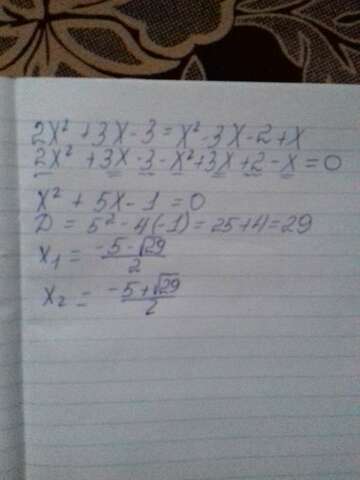 2x² + 3x - 3 = x² - 3x - 2 + x
2x² + 3x - 3 - x² + 3x + 2 - x = 0
x² + 5x - 1 = 0
D = 5² - 4(-1) = 25 + 4 = 29
x₁ = (-5 - √29)/2
x₂ = (-5 + √29)/2